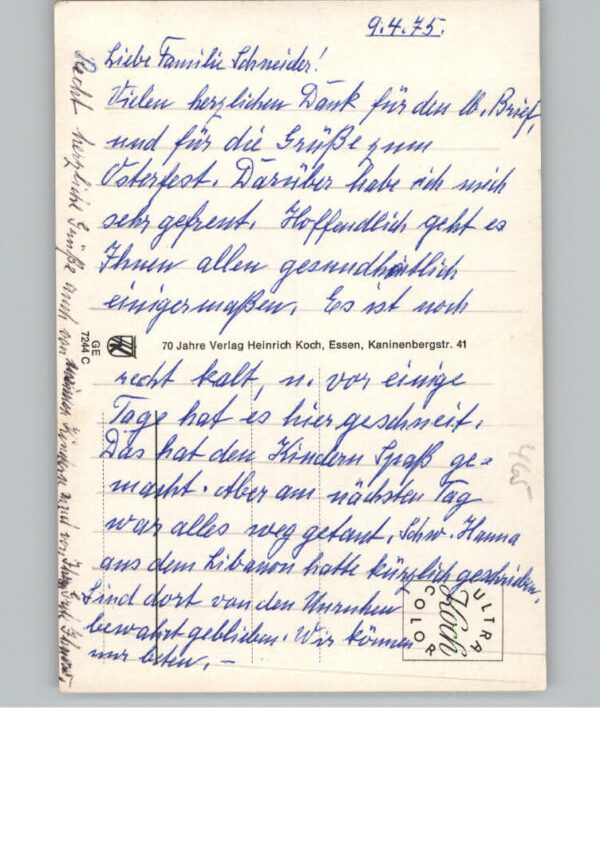 9.4.75.
Liebe Familie Schneider!
Vielen herzlichen Dank für den lb. Brief,
und für die Grüße zum
Osterfest. Darüber habe ich mich
sehr gefreut. Hoffendlich geht es
Ihnen allen gesundheitlich
einigermaßen. Es ist noch
GE
7244 C
70 Jahre Verlag Heinrich Koch, Essen, Kaninenbergstr. 41
recht kalt, u. vor einige
Tage hat es hier geschneit.
Das hat den Kindern Spaß ge=
macht. Aber am nächsten Tag
war alles weg getaut. Schw. Hanna
aus dem Libanon hatte kürzlich geschrieben.
Sind dort von den Unruhen
bewahrt geblieben. Wir können
nur beten. –
ULTRA
Koch
COLOR
465
Recht herzliche Grüße auch von meinen Kindern und von Ihrer